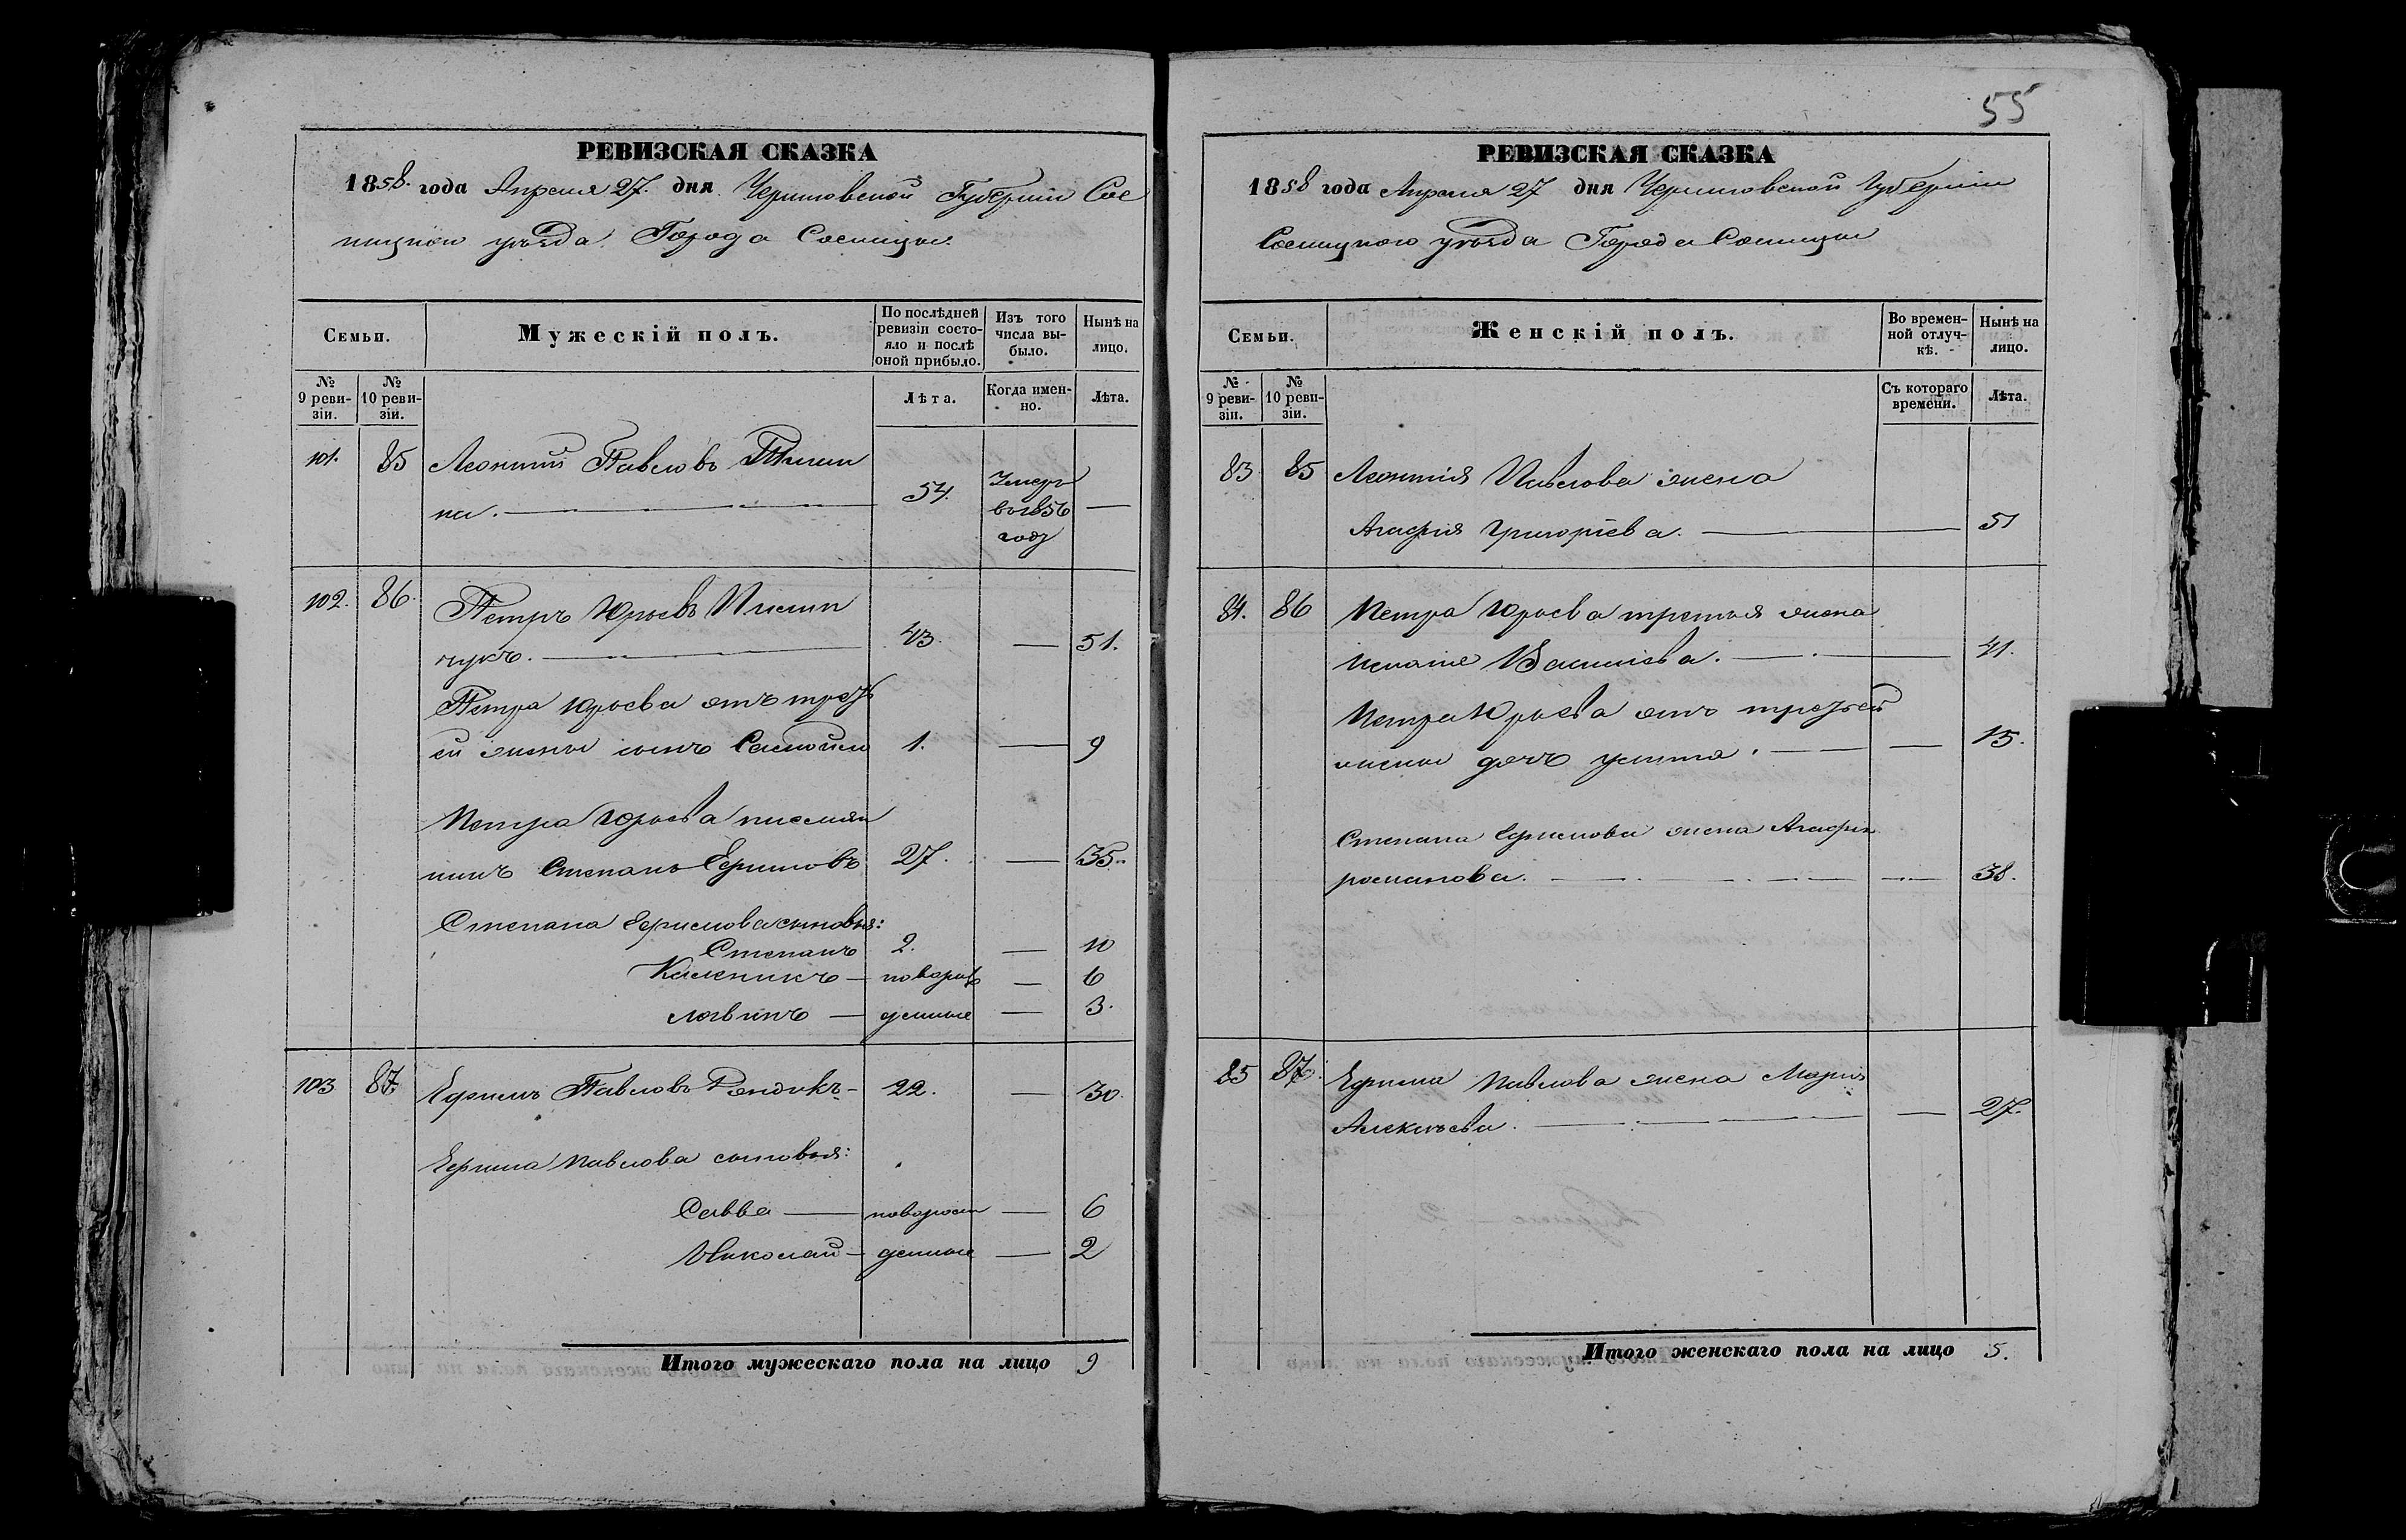 РЕВИЗСКАЯ СКАЗКА
1858. года Апреля 27. дня Черниговской Губернии Сос
ницкои уѣзда. Города Сосницы.
Семьи.
Мужескій полъ.
По послѣдней ревизіи состояло и послѣ оной прибыло.
Изъ того числа выбыло.
Нынѣ на лицо.
№ 9 ревизіи.
№ 10 ревизіи.
Лѣта.
Когда именно.
Лѣта.
101. 85 Леонтий Павловъ
на. — 54. Умеръ —
въ 1856
году
102. 86. Петръ Юрьевъ Писмен
чукъ. — 43. — 51.
Петра Юрьева отъ треть
ей жены сынъ Самойло 1. — 9
Петра Юрьева племян
никъ Степанъ Ефимовъ 27. — 35.
Степана Ефимова сыновья:
Степанъ 2. — 10
Каленикъ — новорож — 6
Логвинъ — денные — 3.
103 87. Ефимъ Павловъ Рендикъ — 22. — 30.
Ефима Павлова сыновья:
Савва — новорож — 6
Николай — денные — 2
Итого мужескаго пола на лицо 9
55
РЕВИЗСКАЯ СКАЗКА
1858 года Апреля 27 дня Черниговской Губернии
Сосницкого уѣзда Города Сосницы
Семьи.
Женскій полъ.
Во временной отлучкѣ.
Нынѣ на лицо.
№ 9 ревизіи.
№ 10 ревизіи.
Съ котораго времени.
Лѣта.
83. 85 Леонтия Павлова жена
Агафия Григоріева. — 51
84. 86 Петра Юрьева третья жена
Василіева. — 41.
Петра Юрьева отъ третьей
жены дочь Улита. — 15.
Степана Ефимова жена Агафия
романова. — 38.
85 87. Ефима Павлова жена Мария
Алексѣева. — 27.
Итого женскаго пола на лицо 5.